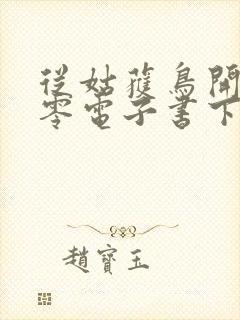 從姑獲鳥開
零電子書下
趙寶玉